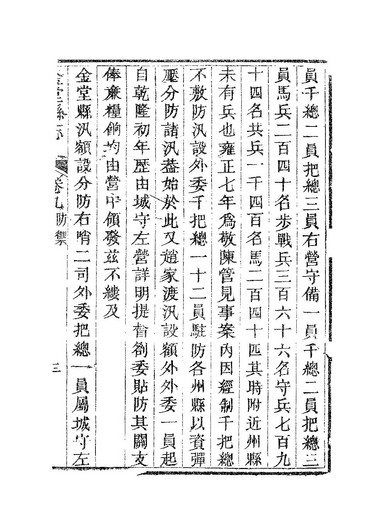 員千總二員把總三員右營守備一員千總二員把總三
員馬兵二百四十名步戰兵三百六十六名守兵七百九
十四名共兵一千四百名馬二百四十匹其時附近州縣
未有兵也雍正七年爲敬陳管見事案內因經制千把總
不敷防汛設外委千把總一十二員駐防各州縣以資彈
壓分防諸汛葢始於此又趙家渡汛設額外外委一員起
自乾隆初年歴由城守左營詳明提督劄委貼防其關支
俸廉糧餉均由營中領發茲不縷及
金堂縣汛額設分防右哨二司外委把總一員屬城守左
金堂縣志
卷九防禦
三